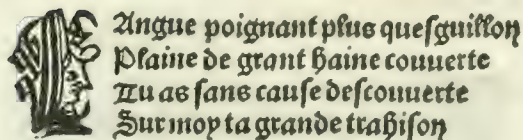 LAngue poignant plus quesguillon
Plaine de grant haine couuerte
Tu as sans cause descouuerte
Sur moy ta grande trahison